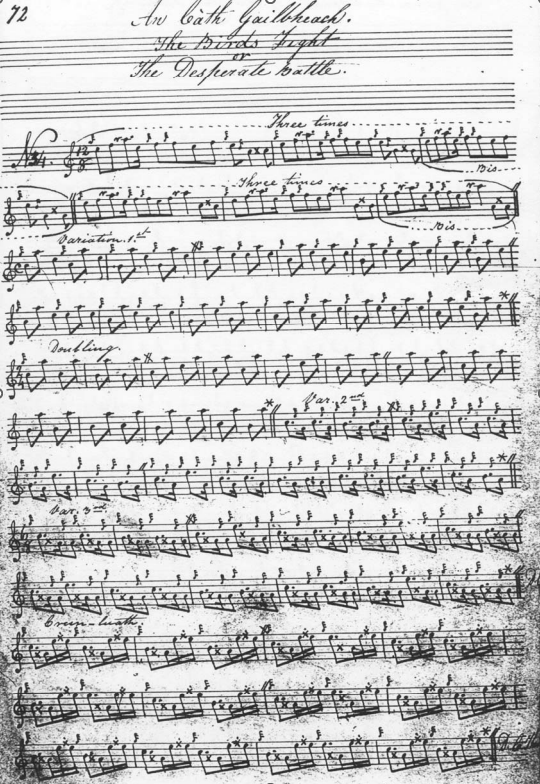 72
An Càth Gailbheach.
The Birds Fight
or
The Desperate Battle.
Three times
No. 34.
12
8
Bis
Three times
Bis
Variation 1st
Doubling.
Var. 2nd
Var. 3rd
Crun-luath